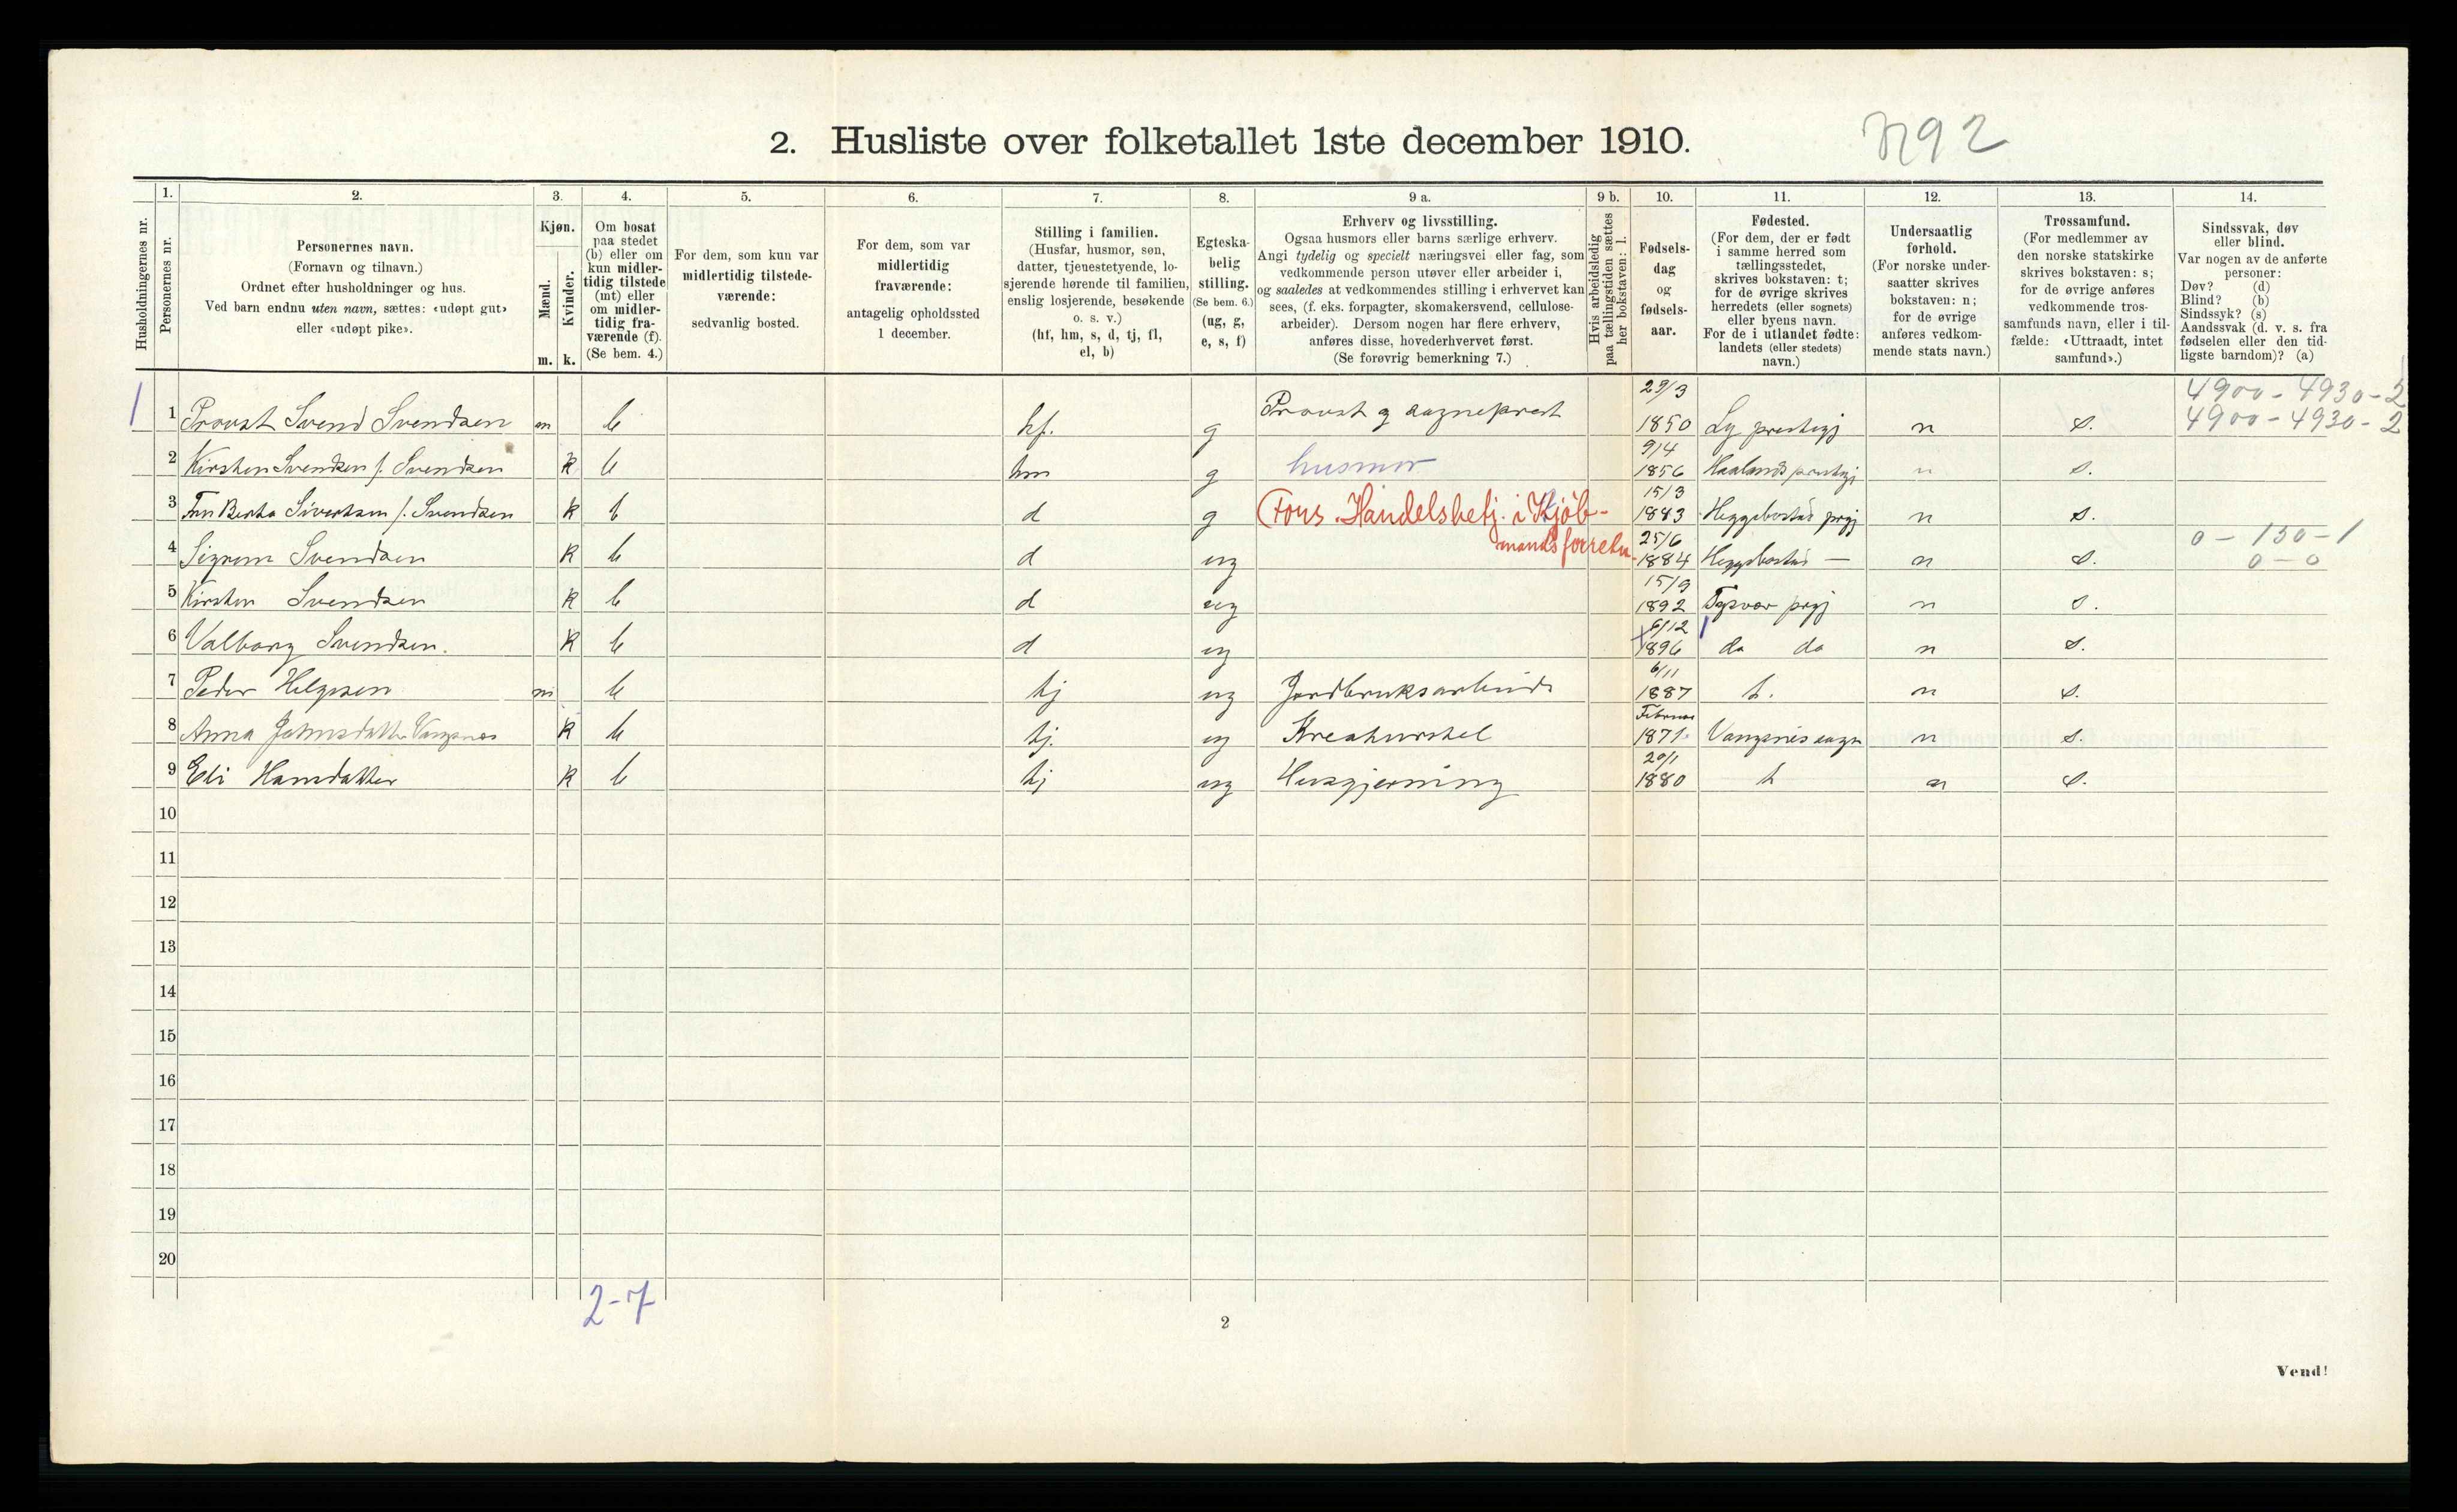 2. Husliste over folketallet 1ste december 1910.
N92
1. 2. 3. 4. 5. 6. 7. 8. 9 a. 9 b. 10. 11. 12. 13. 14.
Husholdningernes nr.
Personernes nr.
Personernes navn.
(Fornavn og tilnavn.)
Ordnet efter husholdninger og hus.
Ved barn endnu uten navn, sættes: «udøpt gut»
eller «udøpt pike».
Kjøn.
Mænd.
Kvinder.
m. k.
Om bosat
paa stedet
(b) eller om
kun midler-
tidig tilstede
(mt) eller
om midler-
tidig fra-
værende (f).
(Se bem. 4.)
For dem, som kun var
midlertidig tilstede-
værende:
sedvanlig bosted.
For dem, som var
midlertidig
fraværende:
antagelig opholdssted
1 december.
Stilling i familien.
(Husfar, husmor, søn,
datter, tjenestetyende, lo-
sjerende hørende til familien,
enslig losjerende, besøkende
o. s. v.)
(hf, hm, s, d, tj, fl,
el, b)
Egteska-
belig
stilling.
(Se bem. 6.)
(ug, g,
e, s, f)
Erhverv og livsstilling.
Ogsaa husmors eller barns særlige erhverv.
Angi tydelig og specielt næringsvei eller fag, som
vedkommende person utøver eller arbeider i,
og saaledes at vedkommendes stilling i erhvervet kan
sees, (f. eks. forpagter, skomakersvend, cellulose-
arbeider). Dersom nogen har flere erhverv,
anføres disse, hovederhvervet først.
(Se forøvrig bemerkning 7.)
Hvis arbeidsledig
paa tællingstiden sættes
her bokstaven: l.
Fødsels-
dag
og
fødsels-
aar.
Fødested.
(For dem, der er født
i samme herred som
tællingsstedet,
skrives bokstaven: t;
for de øvrige skrives
herredets (eller sognets)
eller byens navn.
For de i utlandet fødte:
landets (eller stedets)
navn.)
Undersaatlig
forhold.
(For norske under-
saatter skrives
bokstaven: n;
for de øvrige
anføres vedkom-
mende stats navn.)
Trossamfund.
(For medlemmer av
den norske statskirke
skrives bokstaven: s;
for de øvrige anføres
vedkommende tros-
samfunds navn, eller i til-
fælde: «Uttraadt, intet
samfund».)
Sindssvak, døv
eller blind.
Var nogen av de anførte
personer:
Døv? (d)
Blind? (b)
Sindssyk? (s)
Aandssvak (d. v. s. fra
fødselen eller den tid-
ligste barndom)? (a)
29/3 4900-4930-2
1 1 Provst Svend Svendsen m b hf. g Provst og sogneprest 1850 Ly prestegj n s. 4900-4930-2
9/4
2 Kirsten Svendsen f. Svendsen k b hm g husmor 1856 Haalands prestegj n s.
15/3
3 Fru Berta Sivertsen f. Svendsen k b d g (Fors. Handelsbetj. i Kjøb- 1883 Heggebostad prgj n s.
mandsforretn. 25/6 0-150-1
4 Sigrun Svendsen k b d ug 1884 Heggebostad — n s. 0-0
15/9
5 Kirsten Svendsen k b d ug 1892 Tysvær prgj n s.
6/12
6 Valborg Svendsen. k b d ug 1896 do do n s.
6/11
7 Peder Helgesen m b tj ug Jordbruksarbeide 1887 t. n s.
Februar
8 Anna Johnsdatter Vangsnes k b tj. ug Kreaturstel 1871. Vangsnes sogn n s.
20/1
9 Eli Hansdatter k b tj ug Husgjerning 1880 t n s.
10
11
12
13
14
15
16
17
18
19
20
2-7
2
Vend!